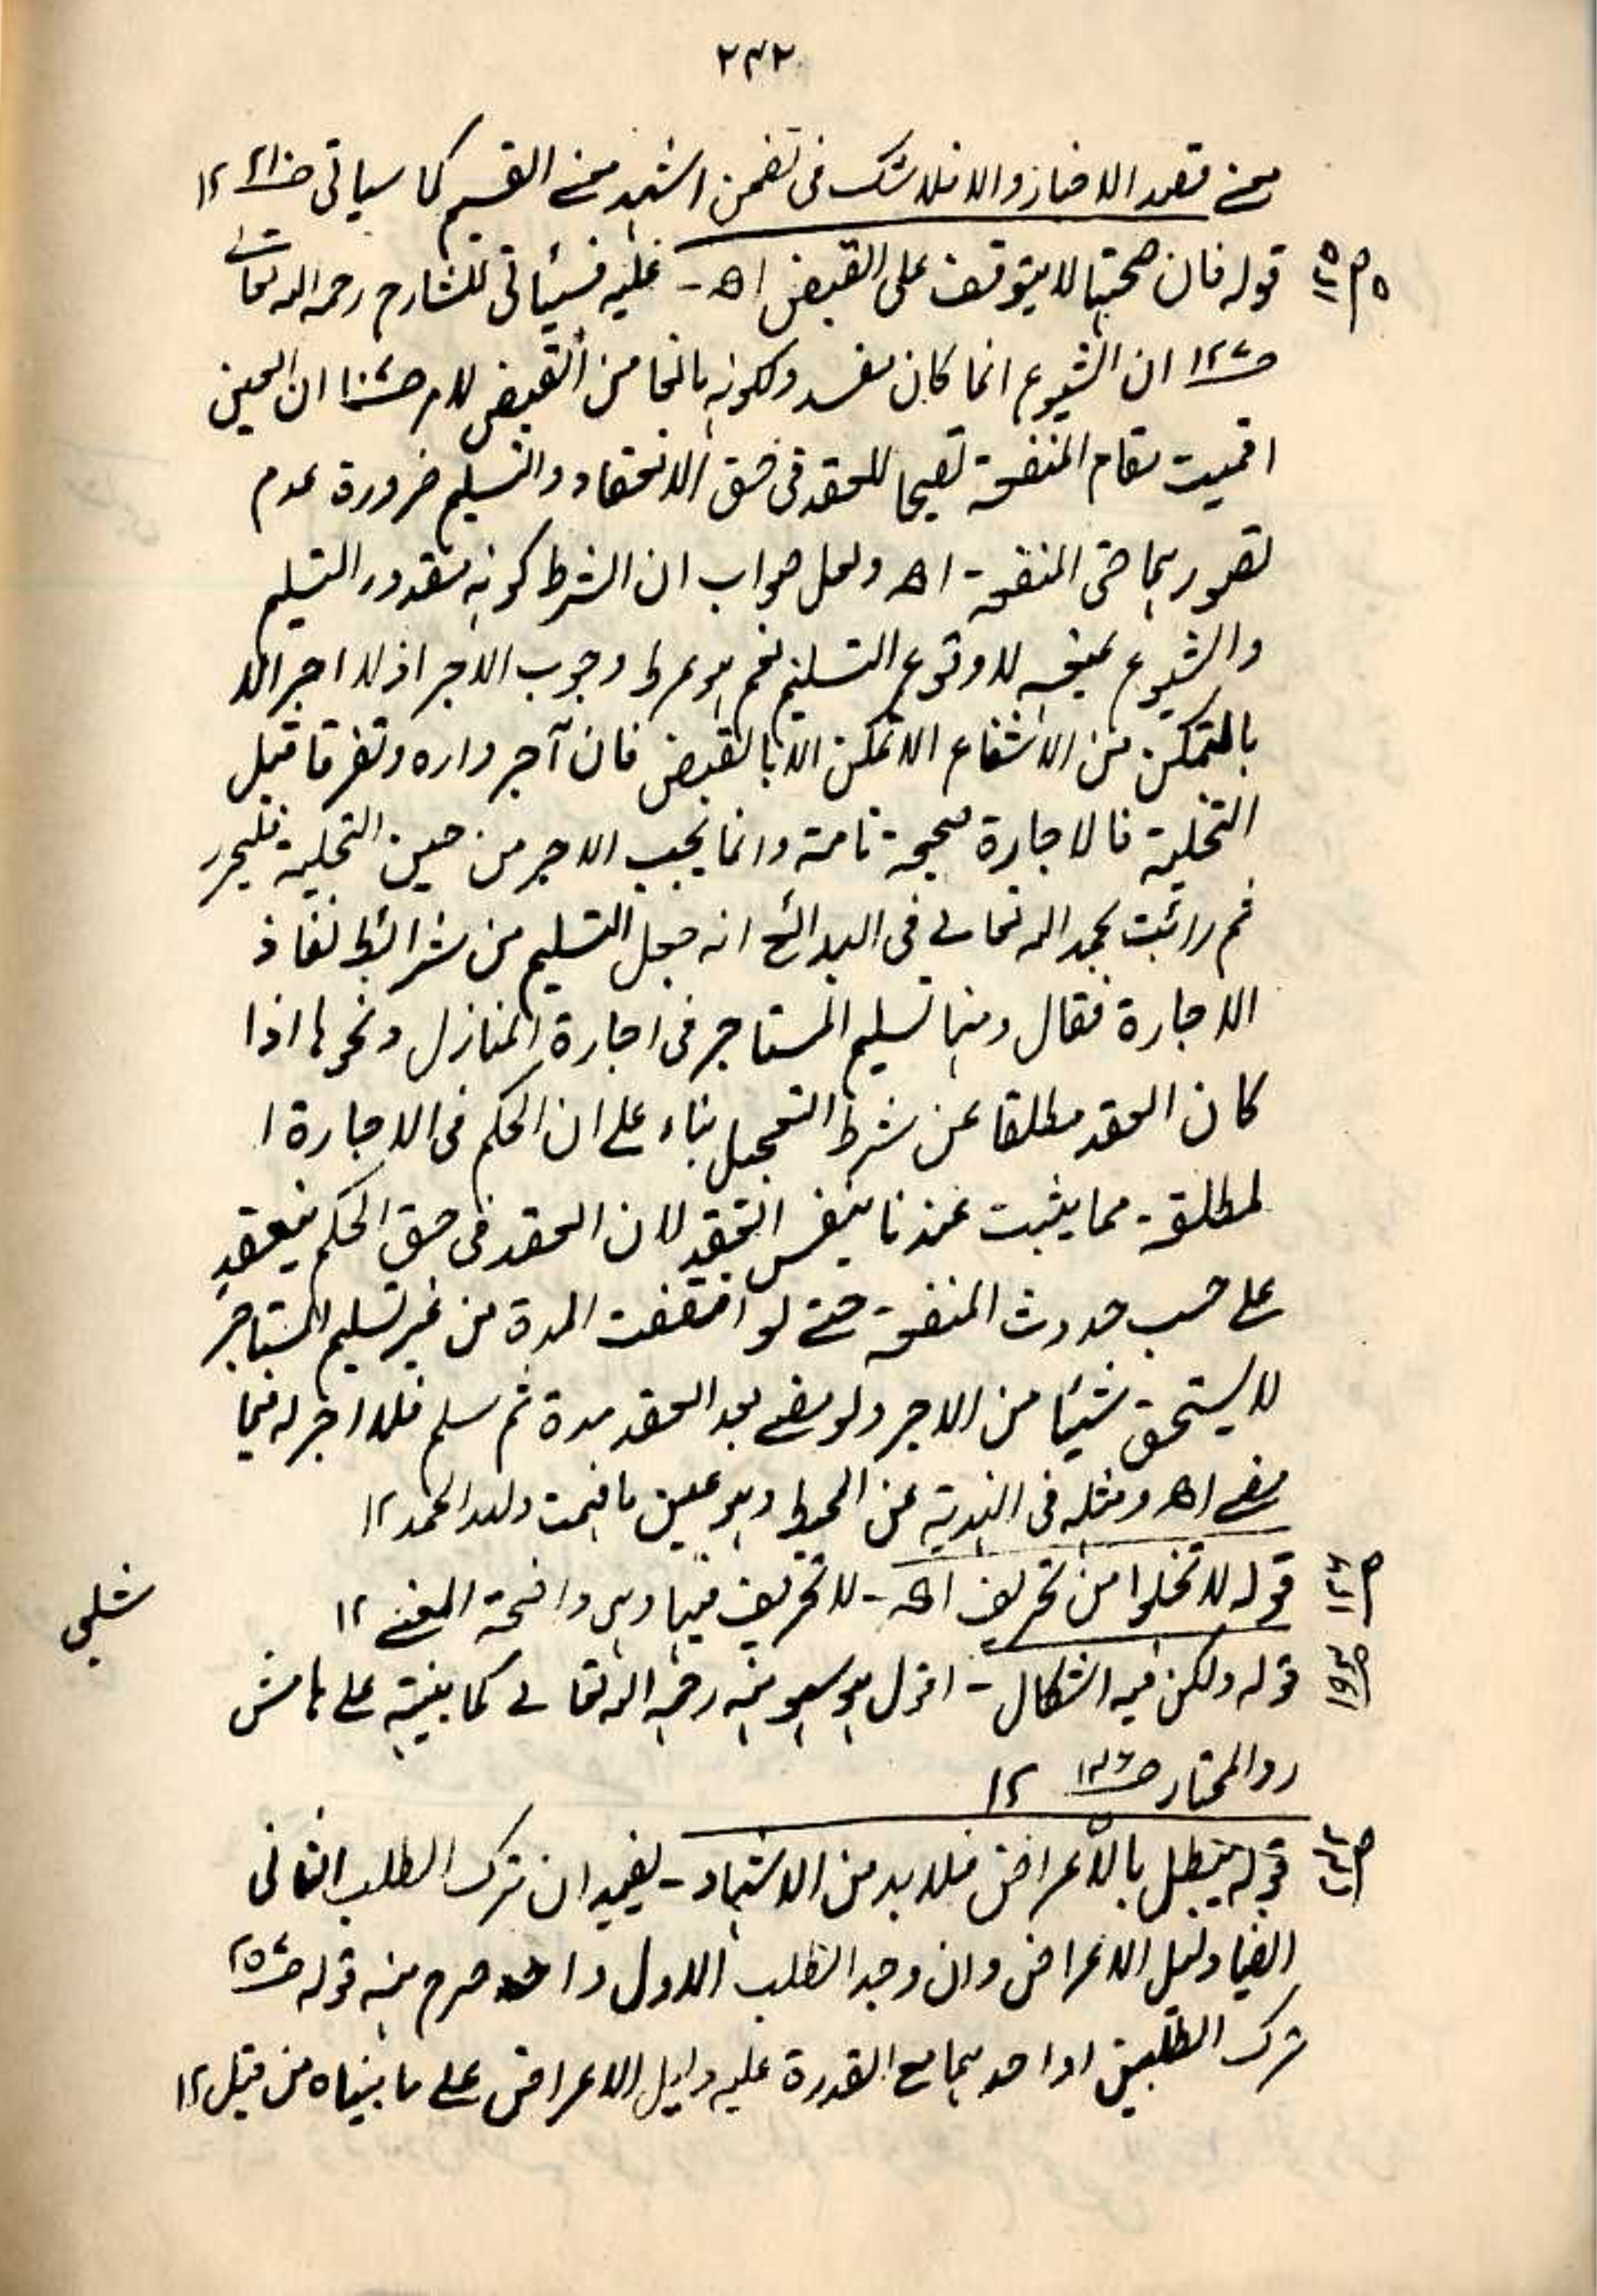 ٢٤٢
معنے قصد الاخبار والا فلا شک فی تضمن اشہد معنے القسم کما سیاتی ١٢
قولہ فان صحتہا لا یتوقف علی القبض اھ۔ علیہ فسیأتی للشارح رحمہ اللہ تعالٰے
ص١٢٧ ان الشیوع انما کان مفسد ولکونہ مانعا من القبض للامر ان العین
اقمیت مقام المنفعۃ تصیحا للعقد فی حق الانعقاد والتسلیم ضرورۃ عدم
تصور ہما حتی المنفعۃ۔ اھ ولعل جواب ان الشرط کونہ مقدور التسلیم
والشیوع یمنعہ لا وقوع التسلیم نعم ہو شرط وجوب الاجر اذ لا اجر الا
بالتمکن من الانتفاع الا تمکن الا بالقبض فان آجر دارہ وتفرقا قبل
التخلیۃ فالاجارۃ صحیحۃ تامۃ وانما یجب الاجر من حین التخلیۃ فلیحرر
ثم رائیت بحمد اللہ تعالٰے فی البدائع انہ جعل التسلیم من شرائط نفاذ
الاجارۃ فقال ومنہا تسلیم المستاجر فی اجارۃ المنازل ونحوہا اذا
کان العقد مطلقا عن شرط التعجیل بناء علے ان الحکم فی الاجارۃ ا
لمطلقۃ۔ مما یثبت عندنا بنفس العقد لان العقد فی حق الحکم ینعقد
علے حسب حدوث المنفعۃ حتے لو انقضت المدۃ من غیر تسلیم المستاجر
لا یستحق شیئا من الاجر ولو مضے بعد العقد مدۃ ثم سلم فلا اجر لہ فیما
مضے اھ ومثلہ فی الہندیۃ عن المحیط وہو عین ما فہمت وللہ الحمد ١٢
قولہ لا تخلوا من تحریف اھ۔ لا تحریف فیہا وہی واضحۃ المعنے ١٢
شلبی
قولہ ولکن فیہ اشکال۔ اقول ہو سہو منہ رحمہ اللہ تعالٰے کما بینتہ علے ہامش
ردالمحتار ١٢
قولہ یبطل بالاعراض فلا بد من الاشہاد۔ یفید ان ترک الطلب الثانی
ایضا دلیل الاعراض وان وجد الطلب الاول و صرح منہ قولہ
ترک الطلبین او احدہما مع القدرۃ علیہ دلیل الاعراض علے ما بیناہ من قبل ١٢